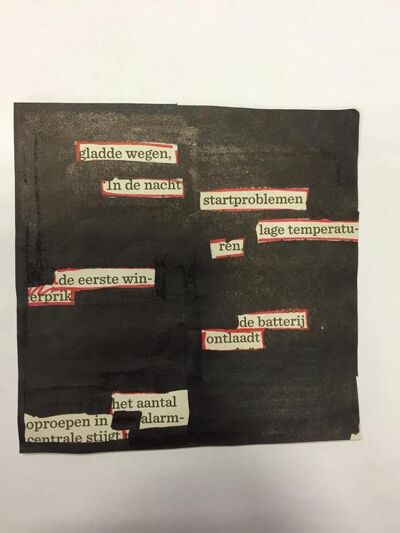 gladde wegen,
In de nacht
startproblemen
lage temperatu-
ren.
de eerste win-
erprik
de batterij
ontlaadt
het aantal
oproepen in alarm-
centrale stijgt